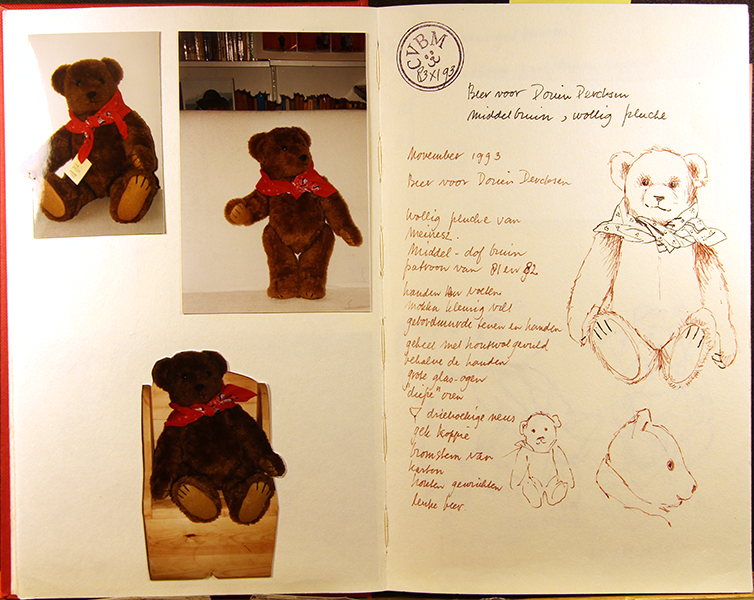 CVBM
83XI93
Beer voor Dorien Dercksen
middelbruin, wollig pluche
November 1993
Beer voor Dorien Dercksen
Wollig pluche van
Middel-dof bruin
patroon van 81 en 82
handen voeten
mokka kleurig vilt
geborduurde tenen en handen
geheel met houtwol gevuld
behalve de handen
grote glas-ogen
"diepe" oren
driehoekige neus
gek koppie
bromstem van
karton
houten gewrichten
leuke beer.